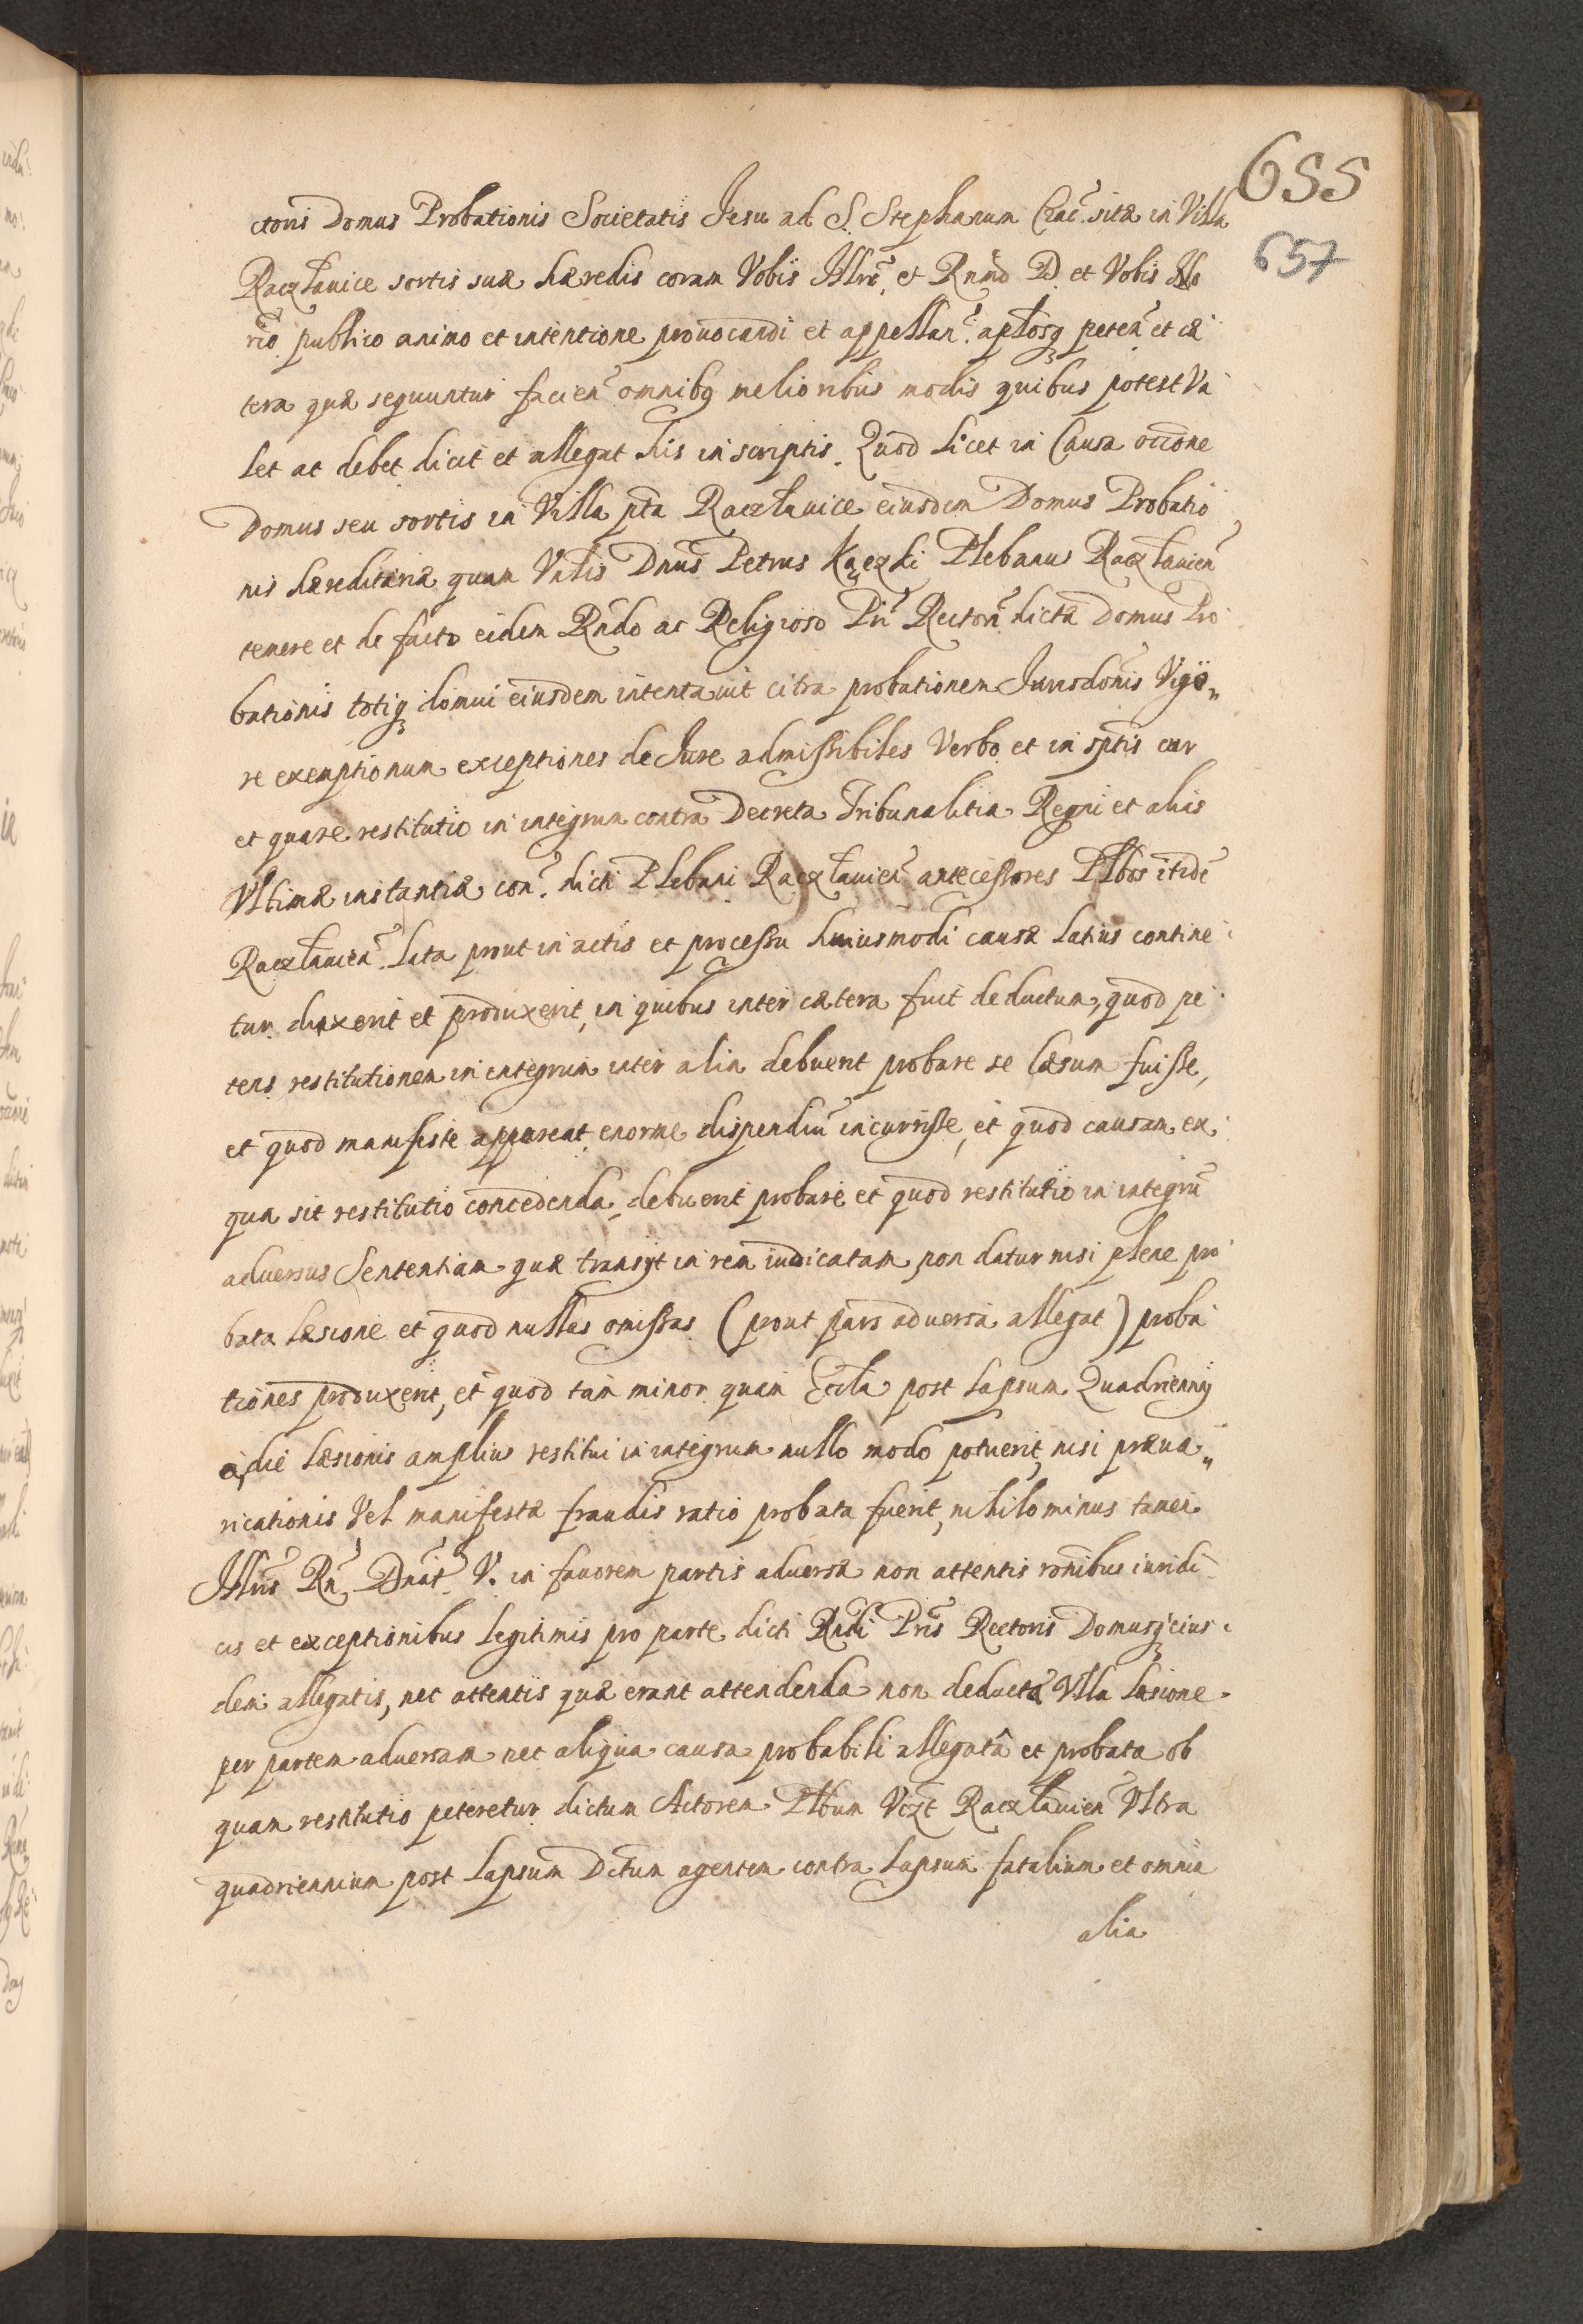 655
657
ctoris Domus Probationis Societatis Jesu ad S. Stephanum Crac. sitæ in Villa
Racżławice sortis suæ hæredis coram Vobis Illri, et Rnndo D. et Vobis No
rio publico animo et intentione prouocandi et appellan. aplosq peten et cæ
tera quæ sequuntur facien omnibq melioribus modis quibus potest Va
let ac debet dicit et allegat his in scriptis. Quod licet in Causa occone
Domus seu sortis in Villa pta Racżławice eiusdem Domus Probatio
nis hæreditariæ quam Vnlis Dnus Petrus Kączki Plebanu Racżławien
tenere et de facto eidem Rndo ac Religioso Pri Rectori dictæ Domus Pro
bationis totiq domui eiusdem intentauit citra probationem Jurisdonis Vigo„
re exemptionum exceptiones de Jure admissibiles Verbo et in sptis cur
et quare restitutio in integrum contra Decreta Tribunalitia Regni et aliis
Vltimæ instantiæ con. dicti Plebani Racżławien antecessores Plbos itide
Racżławien. lata prout in actis et processu huiusmodi causæ latius contine
tur dixerit et produxerit, in quibus inter cætera fuit deductum, quod pe
tens restitutionem in integrum inter alia debuerit probare se læsum fuisse,
et quod manifeste appareat enorme dispendiu incurrisse, et quod causam ex
qua sit restitutio concedenda, debuerit probare et quod restitutio in integru
aduersus Sententiam quæ transijt in rem iudicatam, non datur nisi plene pro
bata læsione et quod nullas omissas (prout pars aduersa allegat) proba
tiones produxerit, et quod tam minor quam Eccla post lapsum Quadriennij
a die læsionis ampliu restitui in integrum nullo modo potuerit, nisi præua„
ricationis Vel manifestæ fraudis ratio probata fuerit, nihilominus tamen
Illris Rn Dnat V. in fauorem partis aduersæ non attentis ronibus iuridi
cis et exceptionibus legitimis pro parte dicti Rndi Pris Rectoris Domusq eius
dem allegatis, nec attentis quæ erant attendenda non deducta Vlla læsione
per partem aduersam nec aliqua causa probabili allegatâ et probata ob
quam restitutio peteretur dictum Actorem Plbum Vczt Racżławien Vltra
quadriennium post lapsum Dctum agentem contra lapsum fatalium et omnia
alia